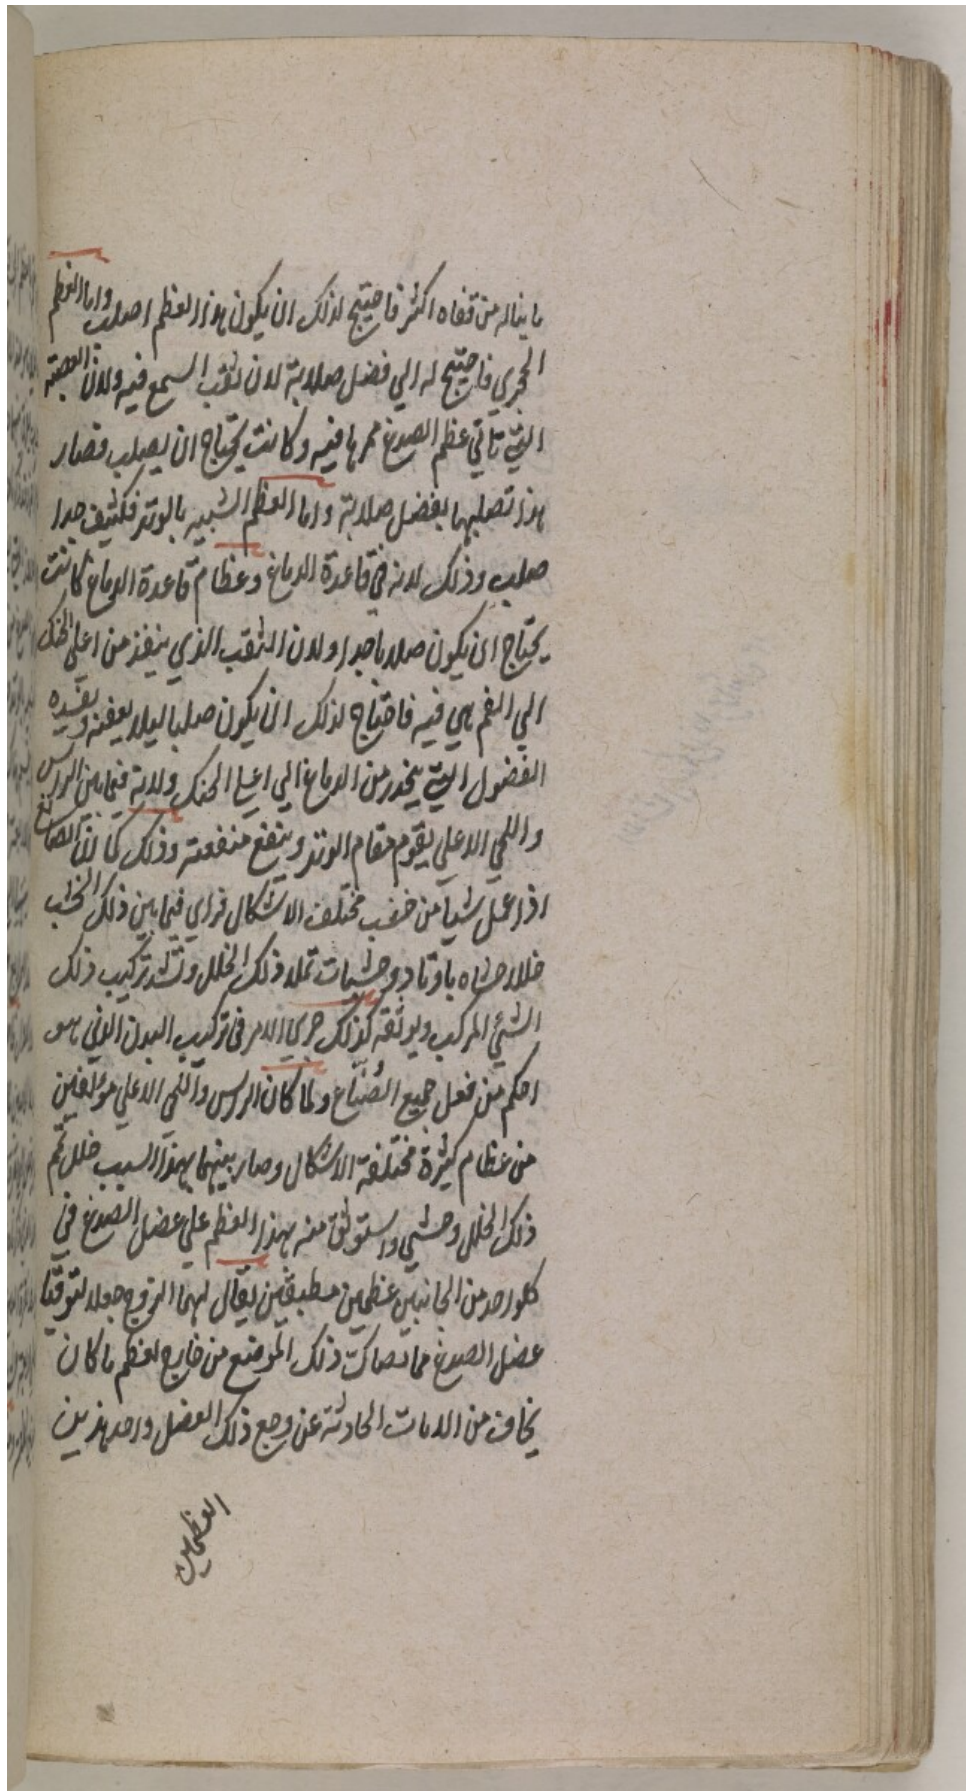 ما يناله من قفاه اكثر فاحتيج لذلك ان يكون هذا العظم اصلب واما العظم
الحجري فاحتيج له الي فضل صلابة لان ثقب السمع فيه ولان العصبة
التي تاتي عظم الصدغ ممرها فيه وكانت يحتاج ان يصلب فصار
هذا تصلبها بفضل صلابة واما العظم الشبيه بالوتد فكثيف جدا
صلب وذلك لانه في قاعدة الدماغ وعظام قاعدة الدماغ كانت
يحتاج ان يكون صلابا جدا ولان الثقب الذي ينفذ من اعلي الحنك
الي الفم هي فيه فاحتاج لذلك ان يكون صلبا ليلا يعفنه ويفسده
الفضول التي ينحدر من الدماغ الي اعلي الحنك ولانه فيما بين الراس
واللحي الاعلي يقوم مقام الوتد وينفع منفعته وذلك كما ان الصانع
اذا عمل شيا من خشب مختلف الاشكال فراي فيما بين ذلك الخشب
خللا حشاه باوتاد وخشبات تملا ذلك الخلل وتشد تركيب ذلك
الشي المركب ويوثقه كذلك جري الامر في تركيب البدن الذي هو
احكم من فعل جميع الصُنّاع ولما كان الراس واللحي الاعلي مولفين
من عظام كثيرة مختلفة الاشكال وصار بينهما بهذا السبب خلل تمم
ذلك الخلل وحشي واستوثق منه بهذا العظم علي عضل الصدغ في
كلواحد من الجانبين عظمين مطبقين يقال لهما الزوج جعلا لتوقيا
عضل الصدغ مما تصاك ذلك الموضع من خارج لعظم ما كان
يخاف من الافات الحادثة عن وجع ذلك العضل واحد هذين
العظمين